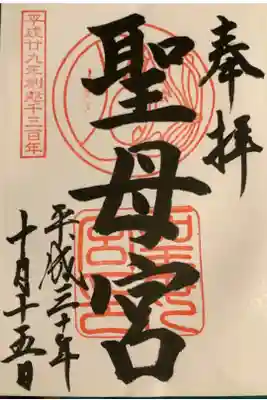 奉拝
聖母宮
平成廿九年創建千三百年
平成三十年
十月十五日